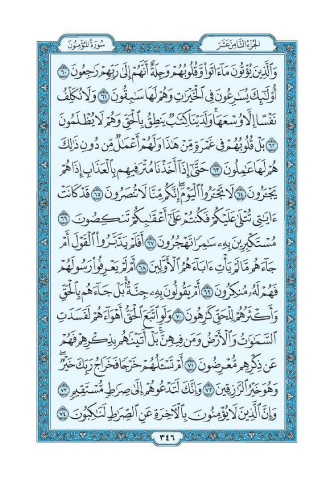 سُورَةُ المُؤْمِنُون
الجُزْءُ الثَّامِنَ عَشَرَ
وَالَّذِينَ يُؤْتُونَ مَا ءَاتَوا۟ وَّقُلُوبُهُمْ وَجِلَةٌ أَنَّهُمْ إِلَىٰ رَبِّهِمْ رَٰجِعُونَ ٦٠
أُو۟لَـٰٓئِكَ يُسَـٰرِعُونَ فِى ٱلْخَيْرَٰتِ وَهُمْ لَهَا سَـٰبِقُونَ ٦١ وَلَا نُكَلِّفُ
نَفْسًا إِلَّا وُسْعَهَا ۖ وَلَدَيْنَا كِتَـٰبٌ يَنطِقُ بِٱلْحَقِّ ۚ وَهُمْ لَا يُظْلَمُونَ
٦٢ بَلْ قُلُوبُهُمْ فِى غَمْرَةٍ مِّنْ هَـٰذَا وَلَهُمْ أَعْمَـٰلٌ مِّن دُونِ ذَٰلِكَ
هُمْ لَهَا عَـٰمِلُونَ ٦٣ حَتَّىٰٓ إِذَآ أَخَذْنَا مُتْرَفِيهِم بِٱلْعَذَابِ إِذَا هُمْ
يَجْـَٔرُونَ ٦٤ لَا تَجْـَٔرُوا۟ ٱلْيَوْمَ ۖ إِنَّكُم مِّنَّا لَا تُنصَرُونَ ٦٥ قَدْ كَانَتْ
ءَايَـٰتِى تُتْلَىٰ عَلَيْكُمْ فَكُنتُمْ عَلَىٰٓ أَعْقَـٰبِكُمْ تَنكِصُونَ ٦٦
مُسْتَكْبِرِينَ بِهِۦ سَـٰمِرًا تَهْجُرُونَ ٦٧ أَفَلَمْ يَدَّبَّرُوا۟ ٱلْقَوْلَ أَمْ
جَآءَهُم مَّا لَمْ يَأْتِ ءَابَآءَهُمُ ٱلْأَوَّلِينَ ٦٨ أَمْ لَمْ يَعْرِفُوا۟ رَسُولَهُمْ
فَهُمْ لَهُۥ مُنكِرُونَ ٦٩ أَمْ يَقُولُونَ بِهِۦ جِنَّةٌۢ ۚ بَلْ جَآءَهُم بِٱلْحَقِّ
وَأَكْثَرُهُمْ لِلْحَقِّ كَـٰرِهُونَ ٧٠ وَلَوِ ٱتَّبَعَ ٱلْحَقُّ أَهْوَآءَهُمْ لَفَسَدَتِ
ٱلسَّمَـٰوَٰتُ وَٱلْأَرْضُ وَمَن فِيهِنَّ ۚ بَلْ أَتَيْنَـٰهُم بِذِكْرِهِمْ فَهُمْ
عَن ذِكْرِهِم مُّعْرِضُونَ ٧١ أَمْ تَسْـَٔلُهُمْ خَرْجًا فَخَرَاجُ رَبِّكَ خَيْرٌ ۖ
وَهُوَ خَيْرُ ٱلرَّٰزِقِينَ ٧٢ وَإِنَّكَ لَتَدْعُوهُمْ إِلَىٰ صِرَٰطٍ مُّسْتَقِيمٍ ٧٣
وَإِنَّ ٱلَّذِينَ لَا يُؤْمِنُونَ بِٱلْـَٔاخِرَةِ عَنِ ٱلصِّرَٰطِ لَنَـٰكِبُونَ ٧٤
٣٤٦